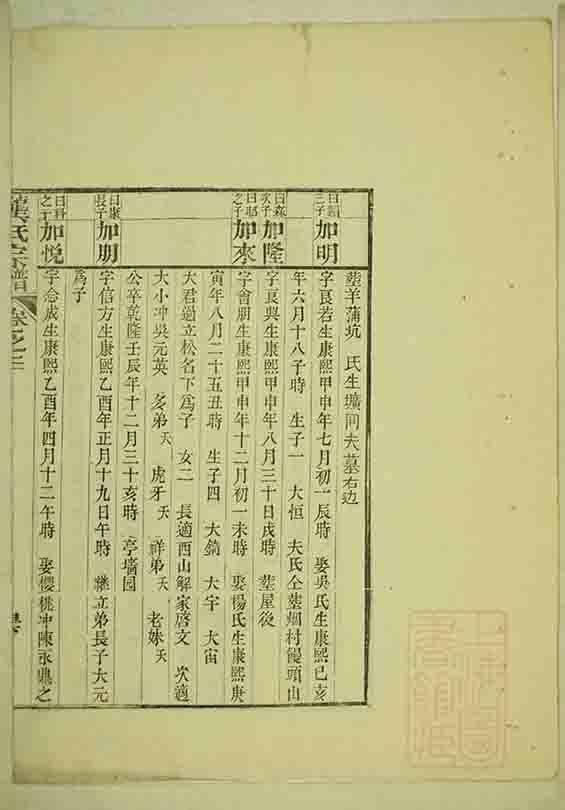 塟羊蒲坑 氏生壙同夫墓右边
曰韶三子 加明 字良若生康熙甲申年七月初一辰時 娶吳氏生康熙已亥
年六月十八子時 生子一 大恒 夫氏仝塟烟村饅頭山
曰森次子 加隆 字良與生康熙甲申年八月三十日戌時 塟屋後
之子 加來 字會朋生康熙甲申年十二月初一未時 娶楊氏生康熙庚
寅年八月二十五丑時 生子四 大錡 大宇 大宙
大君過立松名下爲子 女二 長適西山解家啓文 次適
大小冲吳元英 多弟夭 虎牙夭 祥弟夭 老妹夭
公卒乾隆壬辰年十二月三十亥時 亭墻园
曰康長子 加朋 字信方生康熙乙酉年正月十九日午時 繼立弟長子大元
爲子
曰科之子 加悦 字念成生康熙乙酉年四月十二午時 娶櫻桃冲陳永鼎之
龔氏宗譜 卷之二